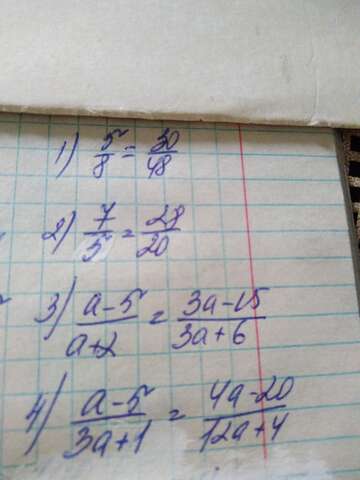 1) 5/8 = 30/48
2) 7/5 = 28/20
3) a-5/a+2 = 3a-15/3a+6
4) a-5/3a+1 = 4a-20/12a+4